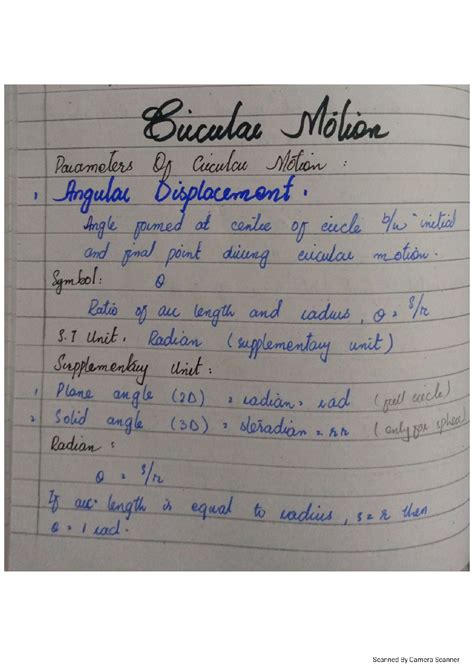 Circular Motion
Parameters Of Circular Motion :
1 Angular Displacement.
Angle formed at centre of circle b/w initial
and final point during circular motion.
Symbol: θ
Ratio of arc length and radius, θ = S/r
S.I Unit. Radian (supplementary unit)
Supplementary Unit :
1 Plane angle (2D) = radian = rad (full circle)
2 Solid angle (3D) = steradian = sr (only for sphere)
Radian :
θ = S/r
If arc length is equal to radius, s = r then
θ = 1 rad.
Scanned By Camera Scanner